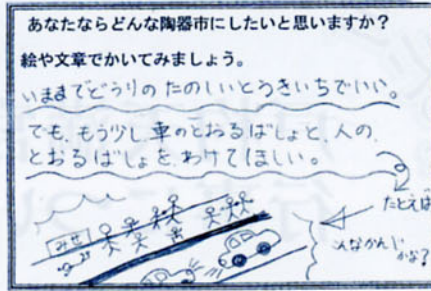 あなたならどんな陶器市にしたいと思いますか？
絵や文章でかいてみましょう。
いままでどうりの たのしいとうきいちでいい。
でも、もう少し 車のとおるばしょと、人の、
とおるばしょを、わけてほしい。
たとえば
こんなかんじ
かな？
みせ